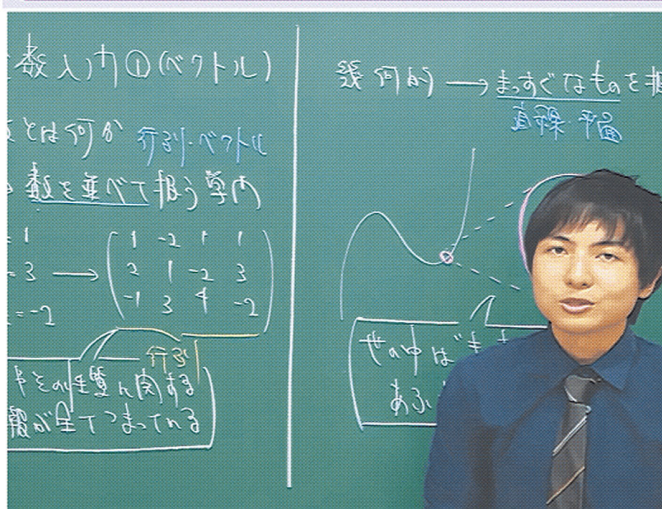 数入门①(ベクトル)
とは何か 行列・ベクトル
数を並べて扱う学問
= 1
= 3 → ( 1 -2 1 1
2 1 -2 3
-1 3 4 -2 )
= -2
行列
やその性質に関する
報が全てつまっている
幾何的 → まっすぐなものを
直線・平面
世の中は
あふ